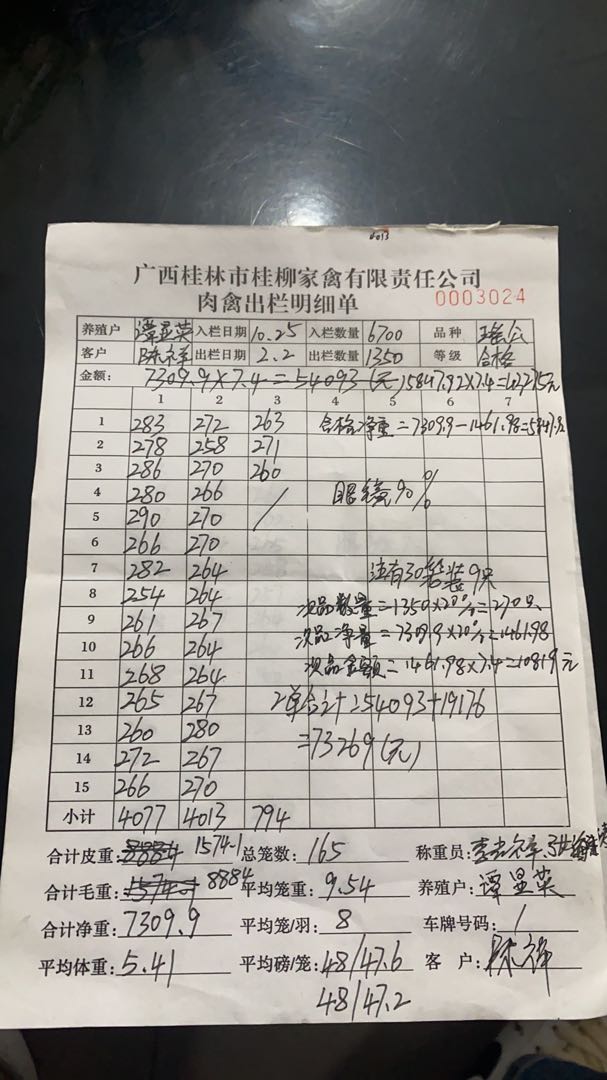 4013
广西桂林市桂柳家禽有限责任公司
肉禽出栏明细单 0003024
养殖户 谭星英 入栏日期 10.25 入栏数量 6700 品种 瑶公
客户 陈祥 出栏日期 2.2 出栏数量 1350 等级 合格
金额: 7309.9×7.4=54093(元) 5847.92×7.4=43275元
1 2 3 4 5 6 7
1 283 272 263 合格净重=7309.9-1461.98=5847.92
2 278 258 271
3 286 270 260
4 280 266 / 眼镜90%
5 290 270
6 266 270
7 282 264 注有30笼装9只
8 254 264 次品数量=1350×20%=270只
9 261 267 次品净重=7309.9×20%=1461.98
10 266 264 次品金额=1461.98×7.4=10819元
11 268 264
12 265 267 2单合计=54093+19176
13 260 280 =73269(元)
14 272 267
15 266 270
小计 4077 4013 794
合计皮重: 8884 1574.1 总笼数: 165 称重员:
合计毛重: 1574.1 8884 平均笼重: 9.54 养殖户: 谭星英
合计净重: 7309.9 平均笼/羽: 8 车牌号码: /
平均体重: 5.41 平均磅/笼: 48/47.6 客户: 陈祥
48/47.2